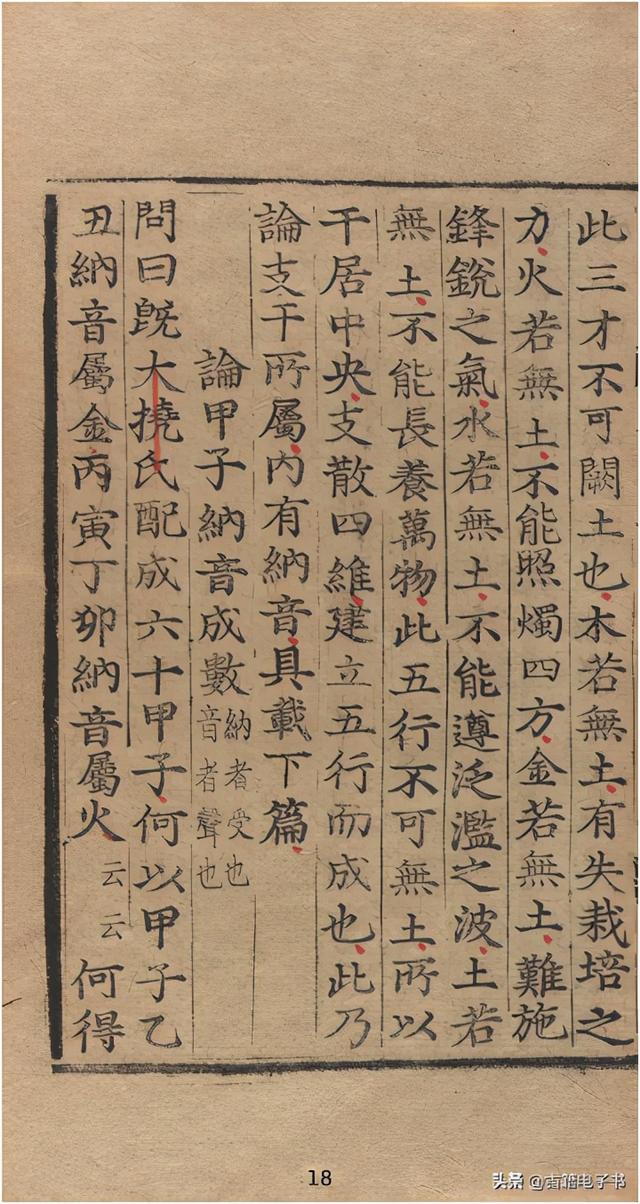 此三才不可闕土也木若無土有失栽培之
力火若無土不能照燭四方金若無土難施
鋒銳之氣水若無土不能遵泛濫之波土若
無土不能長養萬物此五行不可無土所以
干居中央支散四維建立五行而成也此乃
論支干所屬内有納音具載下篇
論甲子納音成數 納者受也
音者聲也
問曰旣大撓氏配成六十甲子何以甲子乙
丑納音屬金丙寅丁卯納音屬火云云何得
18
头条@古籍电子书